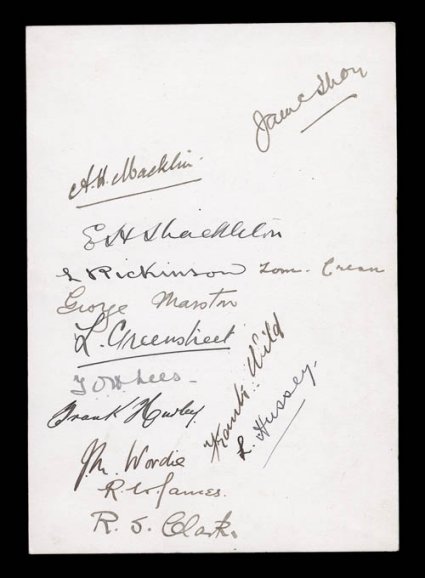 A.H. Macklin.
E H Shackleton
L Rickinson Tom. Crean
George Marston
L. Greenstreet
T O H Lees.
Frank Wild
Frank Hurley
L. Hussey.
J.M. Wordie
R.W. James.
R. S. Clark.